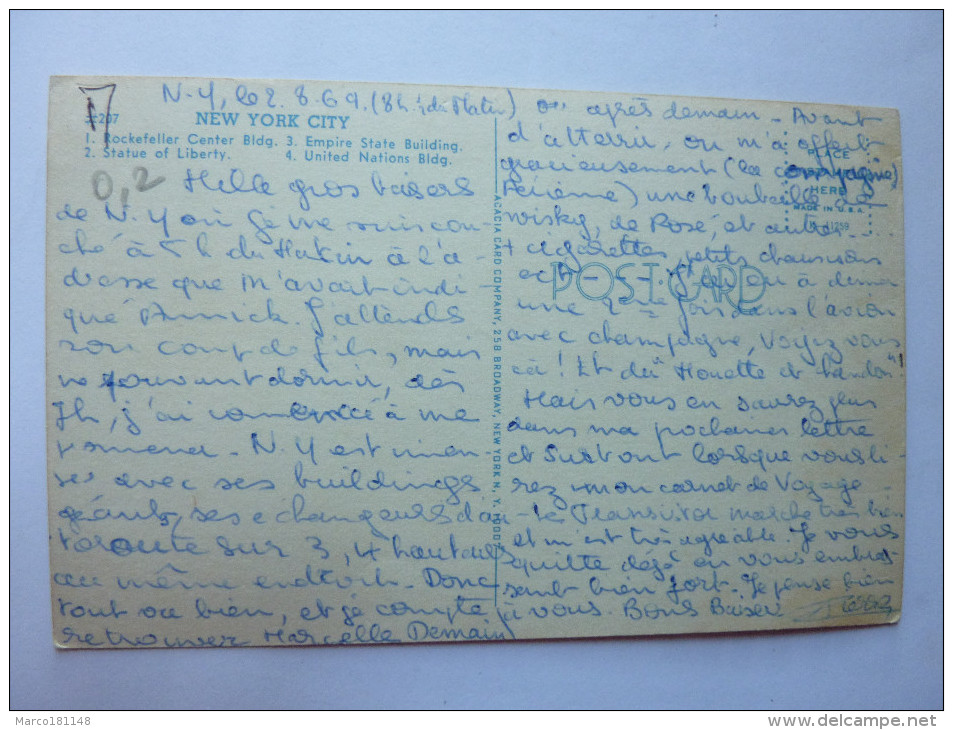 N-Y, le 2.8.69. (8h ½ du Matin)
32207
NEW YORK CITY
1. Rockefeller Center Bldg. 3. Empire State Building.
2. Statue of Liberty. 4. United Nations Bldg.
0,2
Mille gros baisers
de N.Y où je me suis cou-
ché à 5 h du Matin à l'a-
dresse que M'avait indi-
qué Annick. J'attends
son coup de fils, mais
ne pouvant dormir, dès
7h, j'ai commencé à me
promener. N.Y est imen-
se avec ses buildings
géants, ses echangeurs d'au-
toroute sur 3, 4 hauteurs
au même endroit. Donc
tout va bien, et je compte
retrouver Marcelle Demain
ACACIA CARD COMPANY, 258 BROADWAY, NEW YORK N. Y. 10007
ou après demain - Avant
d'atterrir, on m'a offert
gracieusement (la compagnie
Aérienne) une bouteille de
wisky, de Rosé, et autres
+ cigarettes, petits chaussons
ect - J'ai eu à diner
une 2ème fois dans l'avion
avec champagne, Voyez vous
ça! Et du "Mouette et Chandon"!
Mais vous en saurez plus
dans ma prochaine lettre
et surtout lorsque vous li-
rez mon carnet de Voyage.
Le Transistor marche très bien
et m'est très agréable. Je vous
quitte déjà en vous embras-
sant bien fort. Je pense bien
à vous. Bons Baisers
PLACE
HERE
MADE IN U.S.A.
POST CARD
Marco181148
http://www.delcampe.net